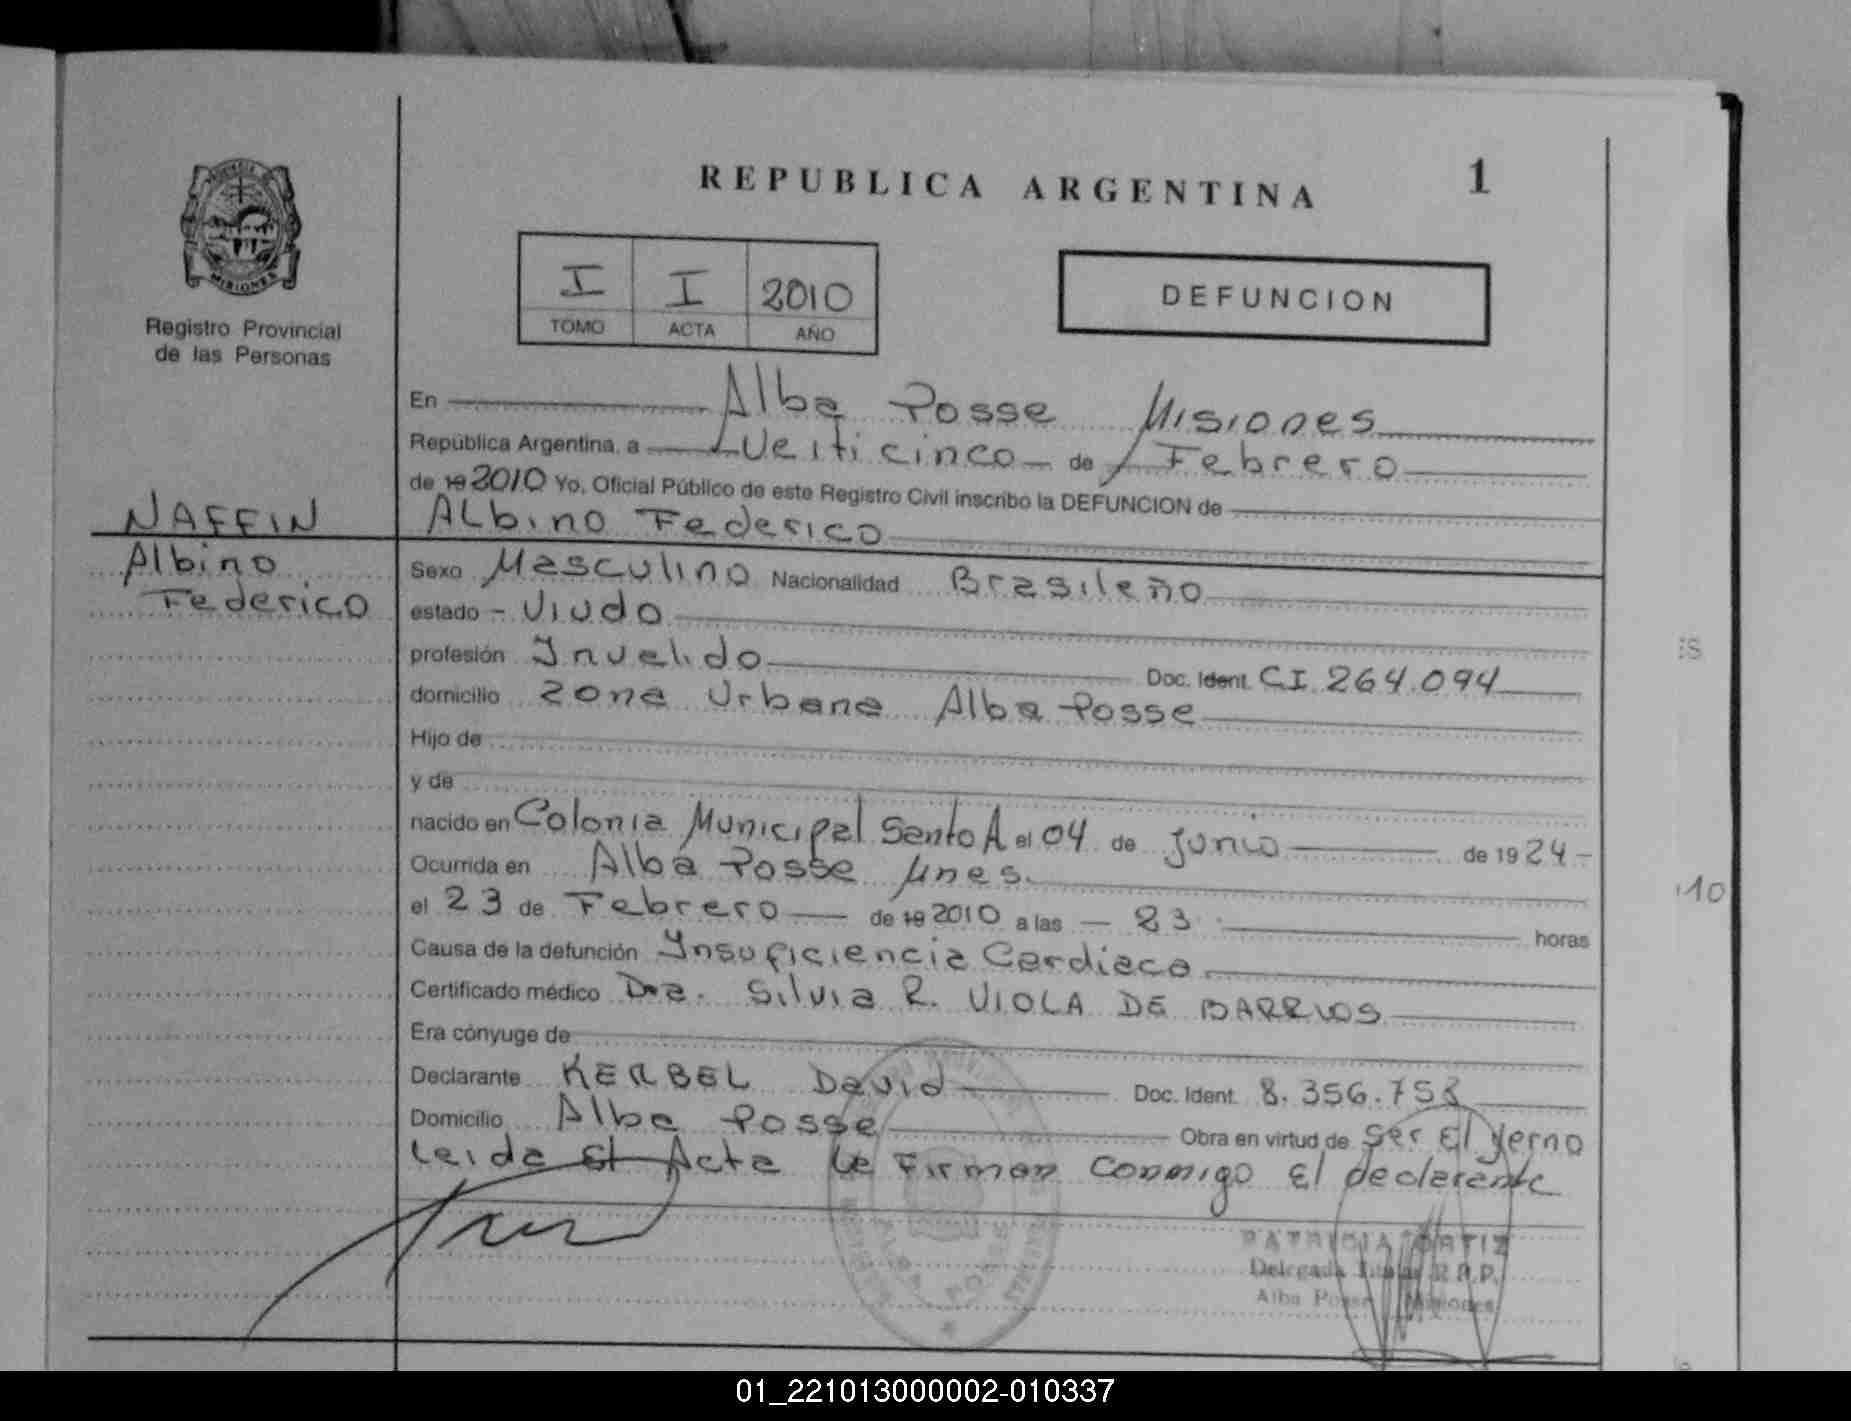 REPUBLICA ARGENTINA
1
MISIONES
Registro Provincial
de las Personas
I I 2010
TOMO ACTA AÑO
DEFUNCION
En Alba Posse Misiones
República Argentina, a Veiticinco de Febrero
de 19 2010 Yo, Oficial Público de este Registro Civil inscribo la DEFUNCION de
NAFFIN
Albino Federico
Albino
Federico
Sexo Masculino Nacionalidad Brasileño
estado - Viudo
profesión Invalido Doc. Ident. CI. 264.094
domicilio zona Urbana Alba Posse
Hijo de
y de
nacido en Colonia Municipal Santo A el 04 de Junio de 19 24 -
Ocurrida en Alba Posse Mnes.
el 23 de Febrero de 19 2010 a las - 23 horas
Causa de la defunción Insuficiencia Cardiaca
Certificado médico Dra. Silvia R. VIOLA DE BARRIOS
Era cónyuge de
Declarante KERBEL David Doc. Ident. 8.356.758
Domicilio Alba Posse Obra en virtud de Ser El yerno
Leida El Acta La Firman conmigo El declarante
PATRICIA ORTIZ
Delegada Titular R.P.P.
Alba Posse Misiones
ALBA POSSE
is
10
01_221013000002-010337